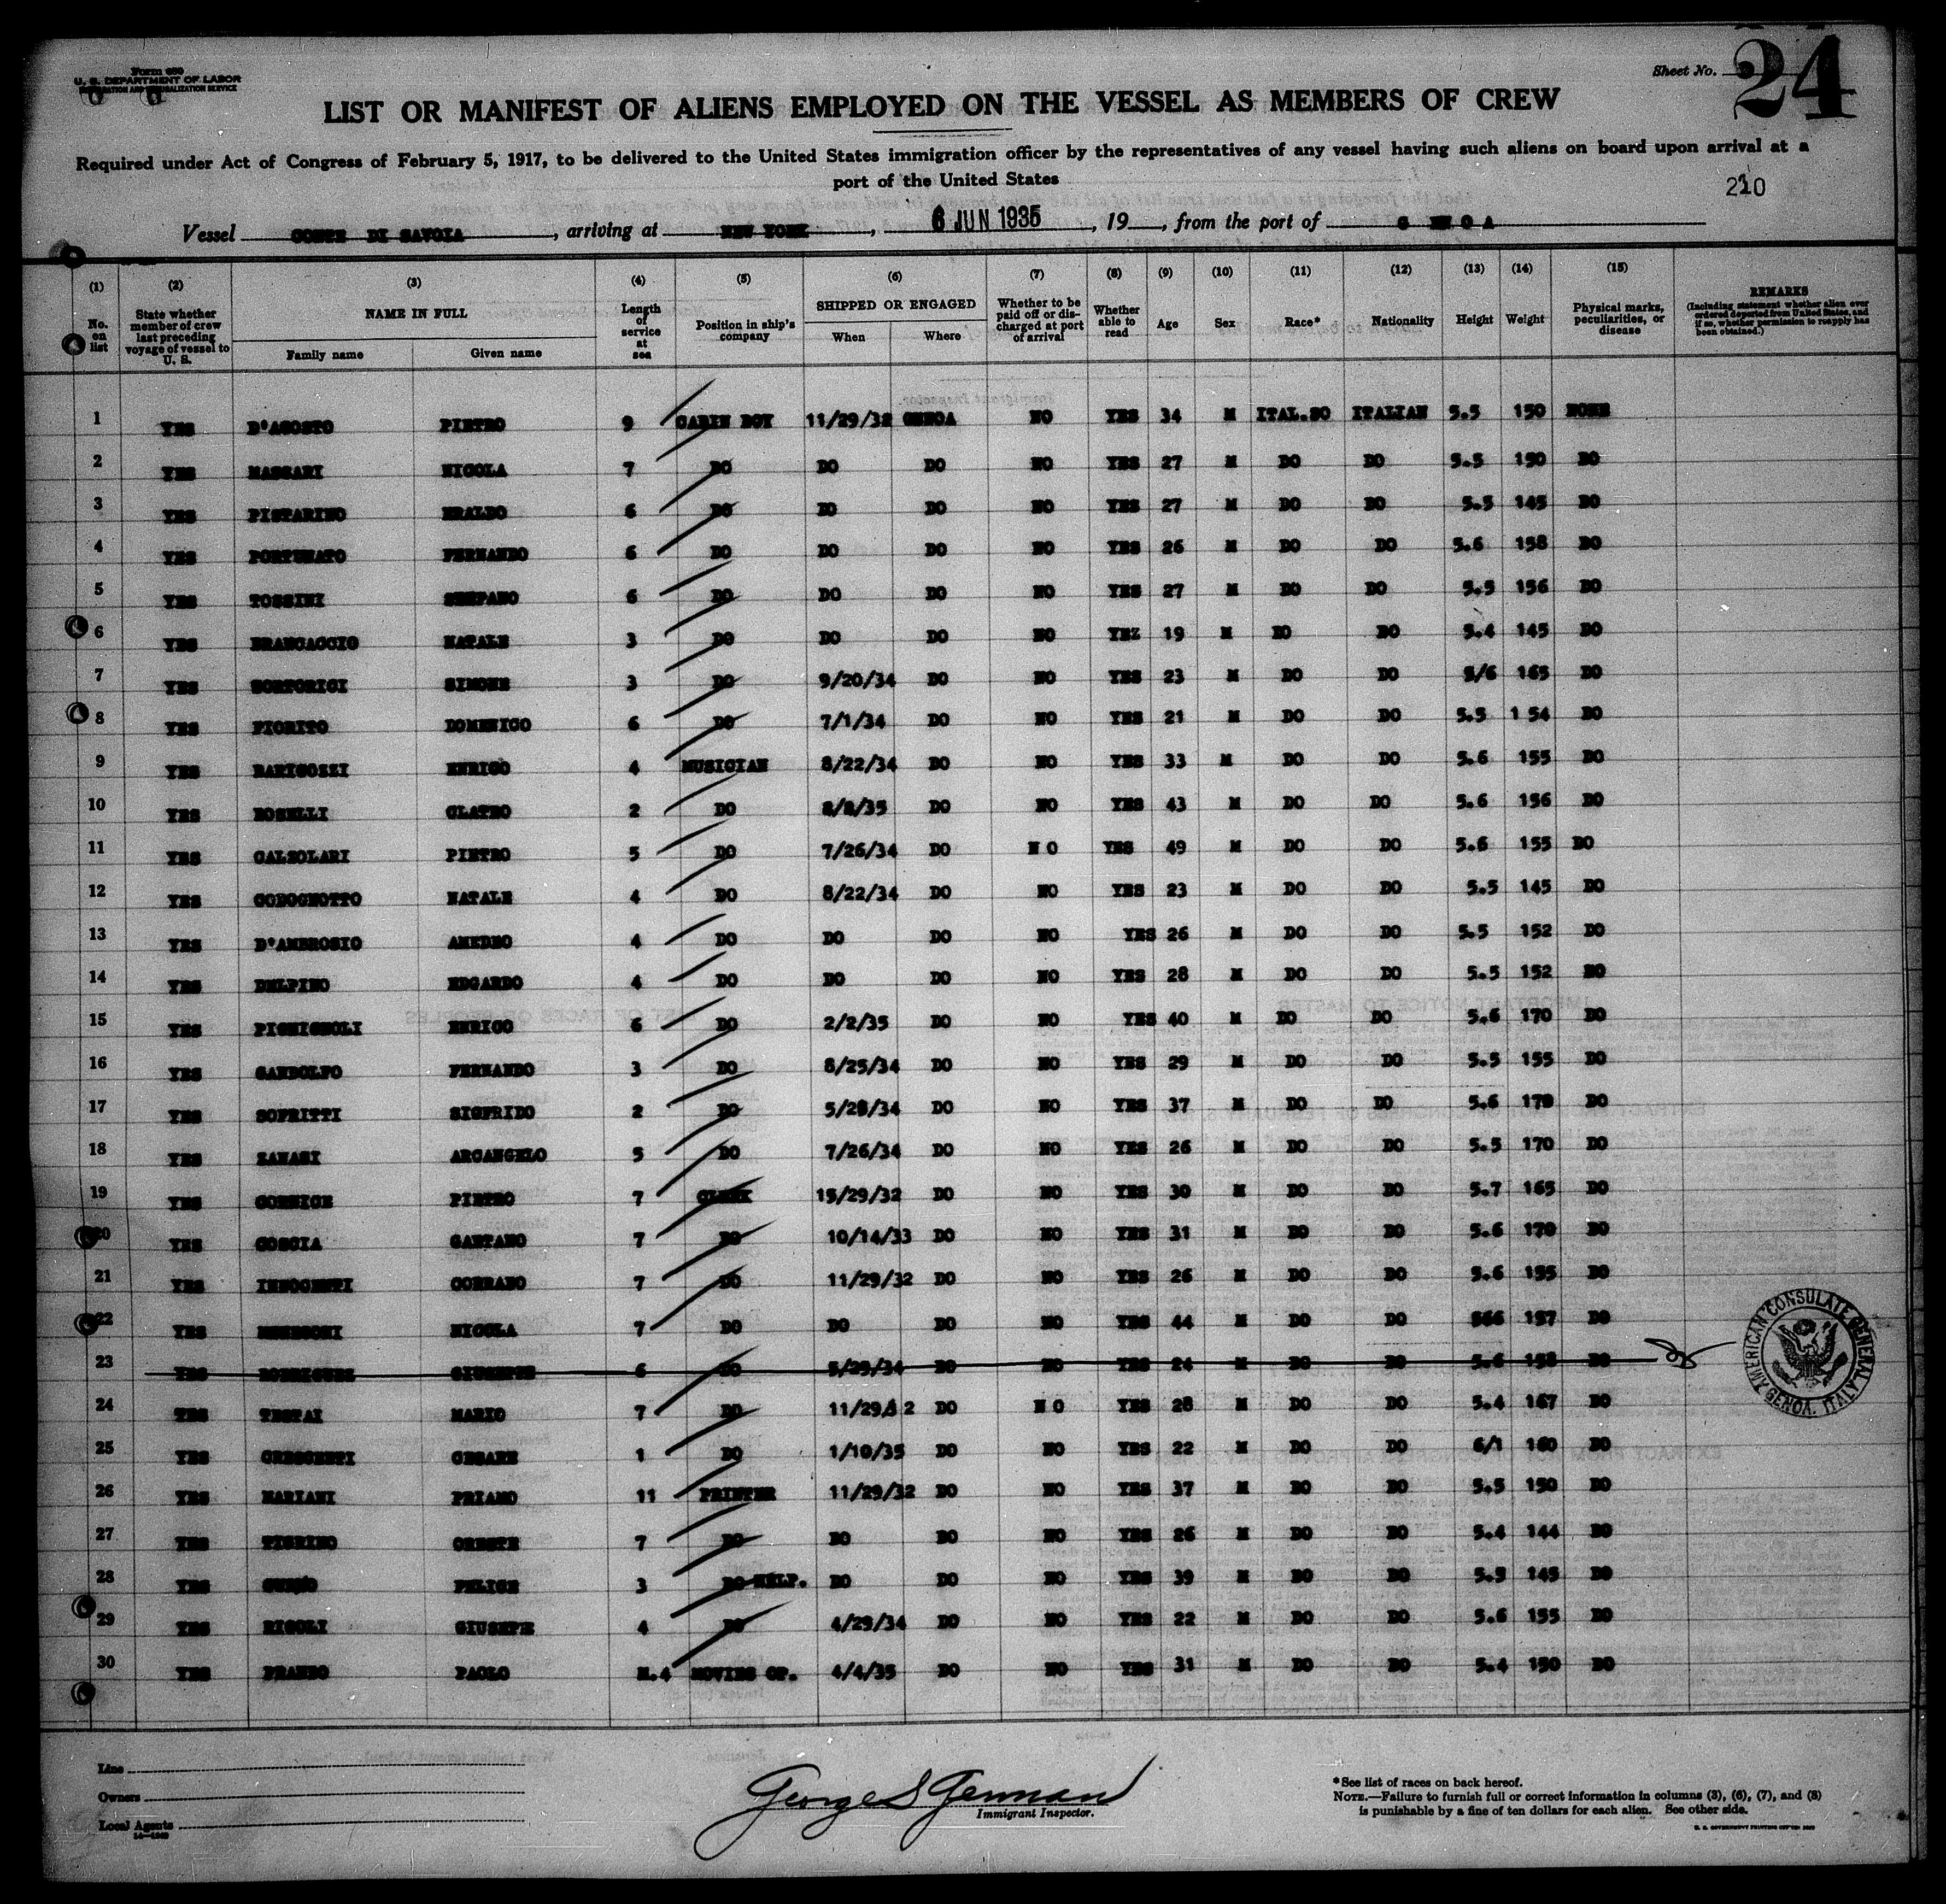 Form 680
U. S. DEPARTMENT OF LABOR
IMMIGRATION AND NATURALIZATION SERVICE
Sheet No. 24
LIST OR MANIFEST OF ALIENS EMPLOYED ON THE VESSEL AS MEMBERS OF CREW
Required under Act of Congress of February 5, 1917, to be delivered to the United States immigration officer by the representatives of any vessel having such aliens on board upon arrival at a
port of the United States
210
Vessel CONTE DI SAVOIA, arriving at NEW YORK, 6 JUN 1935, 19, from the port of GENOA
(1) (2) (3) (4) (5) (6) (7) (8) (9) (10) (11) (12) (13) (14) (15)
No. on list State whether member of crew last preceding voyage of vessel to U. S. NAME IN FULL Family name Given name Length of service at sea Position in ship's company SHIPPED OR ENGAGED When Where Whether to be paid off or discharged at port of arrival Whether able to read Age Sex Race* Nationality Height Weight Physical marks, peculiarities, or disease REMARKS (Including statement whether alien ever ordered deported from United States, and if so, whether permission to reapply has been obtained.)
1 YES D'AGOSTO PIETRO 9 CABIN BOY 11/29/32 GENOA NO YES 34 M ITAL.SO ITALIAN 5.5 150 NONE
2 YES MASSARI NICOLA 7 DO DO DO NO YES 27 M DO DO 5.5 150 DO
3 YES PISTARINO ERALDO 6 DO DO DO NO YES 27 M DO DO 5.5 145 DO
4 YES FORTUNATO FERNANDO 6 DO DO DO NO YES 26 M DO DO 5.6 158 DO
5 YES TOSSINI STEFANO 6 DO DO DO NO YES 27 M DO DO 5.5 156 DO
6 YES BRANCACCIO NATALE 3 DO DO DO NO YEZ 19 M DO DO 5.4 145 DO
7 YES SORTORICI SIMONE 3 DO 9/20/34 DO NO YES 23 M DO DO 5/6 165 DO
8 YES FIORITO DOMENICO 6 DO 7/1/34 DO NO YES 21 M DO DO 5.5 1 54 DO
9 YES BARIGOZZI ENRICO 4 MUSICIAN 8/22/34 DO NO YES 33 M DO DO 5.6 155 DO
10 YES ROSELLI 2 DO 8/8/35 DO NO YES 43 M DO DO 5.6 156 DO
11 YES CALZOLARI PIETRO 5 DO 7/26/34 DO N O YES 49 M DO DO 5.6 155 DO
12 YES CODOGNOTTO NATALE 4 DO 8/22/34 DO NO YES 23 M DO DO 5.5 145 DO
13 YES D'AMBROSIO AMEDEO 4 DO DO DO NO YES 26 M DO DO 5.5 152 DO
14 YES DELPINO EDGARDO 4 DO DO DO NO YES 28 M DO DO 5.5 152 DO
15 YES PIGHIGNOLI ENRICO 6 DO 2/2/35 DO NO YES 40 M DO DO 5.6 170 DO
16 YES GANDOLFO FERNANDO 3 DO 8/25/34 DO NO YES 29 M DO DO 5.5 155 DO
17 YES SOFRITTI SIGFRIDO 2 DO 5/28/34 DO NO YES 37 M DO DO 5.6 170 DO
18 YES ZANASI ARCANGELO 5 DO 7/26/34 DO NO YES 26 M DO DO 5.5 170 DO
19 YES CORNICE PIETRO 7 CLERK 15/29/32 DO NO YES 30 M DO DO 5.7 165 DO
20 YES COSCIA GAETANO 7 DO 10/14/33 DO NO YES 31 M DO DO 5.6 170 DO
21 YES INNOCENTI CORRADO 7 DO 11/29/32 DO NO YES 26 M DO DO 5.6 155 DO
22 YES NICOLA 7 DO DO DO NO YES 44 M DO DO 566 157 DO
23 YES RODRIGUEZ GIUSEPPE 6 DO 5/29/34 DO NO YES 24 M DO DO 5.6 158 DO
24 YES TESTAI MARIO 7 DO 11/29/32 DO N O YES 28 M DO DO 5.4 167 DO
25 YES CRESCENTI CESARE 1 DO 1/10/35 DO NO YES 22 M DO DO 6/1 160 DO
26 YES MARIANI PRIAMO 11 PRINTER 11/29/32 DO NO YES 37 M DO DO 5.5 150 DO
27 YES ORESTE 7 DO DO DO NO YES 26 M DO DO 5.4 144 DO
28 YES FELICE 3 DO HELP. DO DO NO YES 39 M DO DO 5.5 145 DO
29 YES RIGOLI GIUSEPPE 4 DO 4/29/34 DO NO YES 22 M DO DO 5.6 155 DO
30 YES PRANDO PAOLO M.4 MOVIES OP. 4/4/35 DO NO YES 31 M DO DO 5.4 150 DO
AMERICAN CONSULATE GENERAL GENOA, ITALY
Line
Owners
Local Agents
George S German
Immigrant Inspector.
*See list of races on back hereof.
NOTE.—Failure to furnish full or correct information in columns (3), (6), (7), and (8)
is punishable by a fine of ten dollars for each alien. See other side.
U. S. GOVERNMENT PRINTING OFFICE